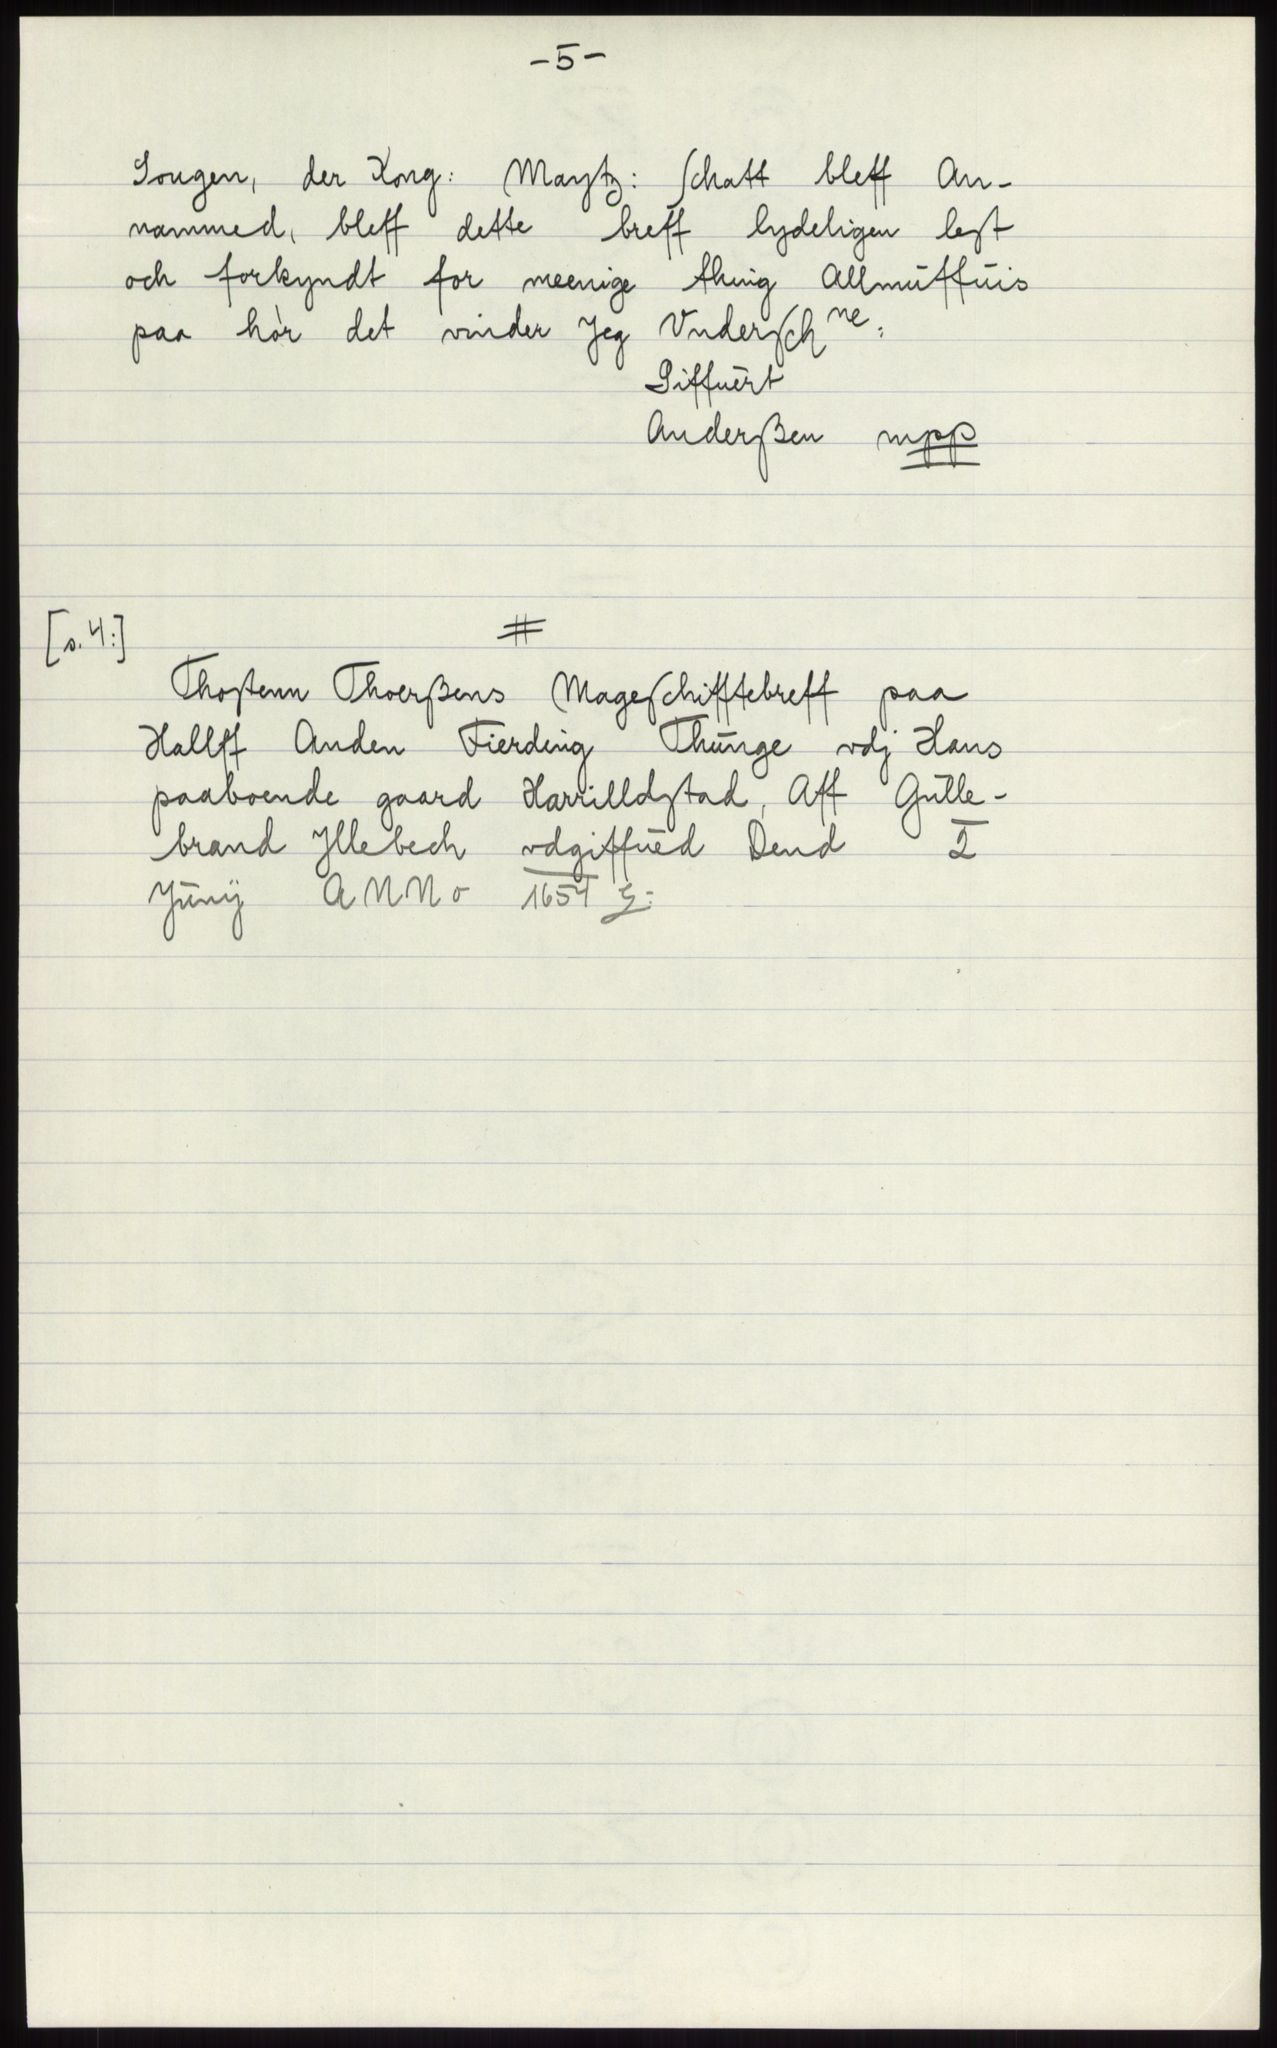 -5-
Sougen, der Kong: Maytz: schatt bleff An-
nammed, bleff dette breff lydeligen lest
och forkyndt for meenige thing Allmuffuis
paa hør det vinder Jeg Undersch ne:
Siffuert
Anderßen mpp
[s. 4:]
#
Thostenn Thoerßens Mageschifftebreff paa
Hallff Anden Fierding Thunge vdj Hans
paaboende gaard Harrilldstad, Aff Gulle-
brand Jllebech vdgiffued Dend 2
Junij ANNo 1654